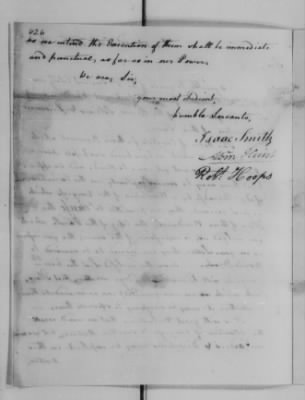 426
as we intend the Execution of them shall be immediate
and punctual, as far as in our Power.
We are, Sir,
your most Obedient,
humble Servants,
Isaac Smith
Abm Hunt
Robt. Hoops